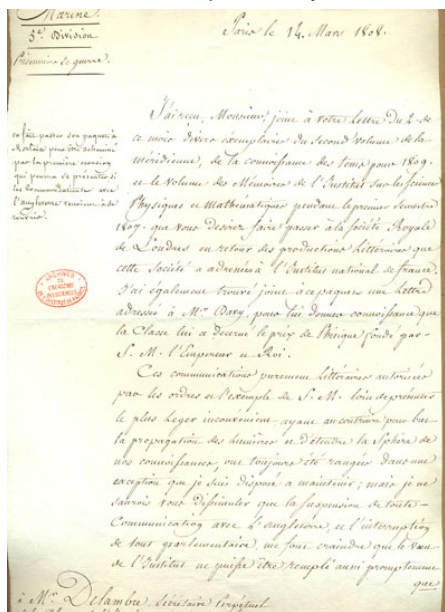 Marine.
5e. Division
Prisonniers de guerre.
Paris le 14. Mars 1808.
on fait passer son paquet à
Morlaix pour être acheminé
par la première occasion
qui pourra se présenter si
les Communications avec
l'angleterre venaient à se
rouvrir.
J'ai reçu, Monsieur, joint à votre Lettre du 2. de
ce mois divers exemplaires du Second Volume de la
méridienne, de la connoissance des tems pour 1809.
et le Volume des Mémoires de l'Institut sur les Sciences
Physiques et Mathématiques pendant le premier Semestre
1807. que vous desirez faire passer à la Société Royale
de Londres en retour des productions Littéraires que
cette Société a adressées à l'Institut national de france.
J'ai également trouvé joint à ce paquet une Lettre
adressée à Mr. Davy, pour lui donner connoissance que
la Classe lui a décerné le prix de Phisique fondé par
S. M. l'Empereur et Roi.
Ces communications purement littéraires autorisées
par les ordres et l'exemple de S. M. loin de présenter
le plus leger inconvenient, ayant au contraire pour but
la propagation des lumières et d'étendre la Sphère de
nos connoissances, ont toujours été rangées dans une
exception que je suis disposé à maintenir; mais je ne
saurois vous dissimuler que la suspension de toute
Communication avec l'angleterre, et l'interruption
de tout parlementaire, me font craindre que le vœu
de l'Institut ne puisse être rempli aussi promptement
que
à Mr. Delambre, Secrétaire Perpétuel
ARCHIVES
DE L'ACADÉMIE
DES SCIENCES